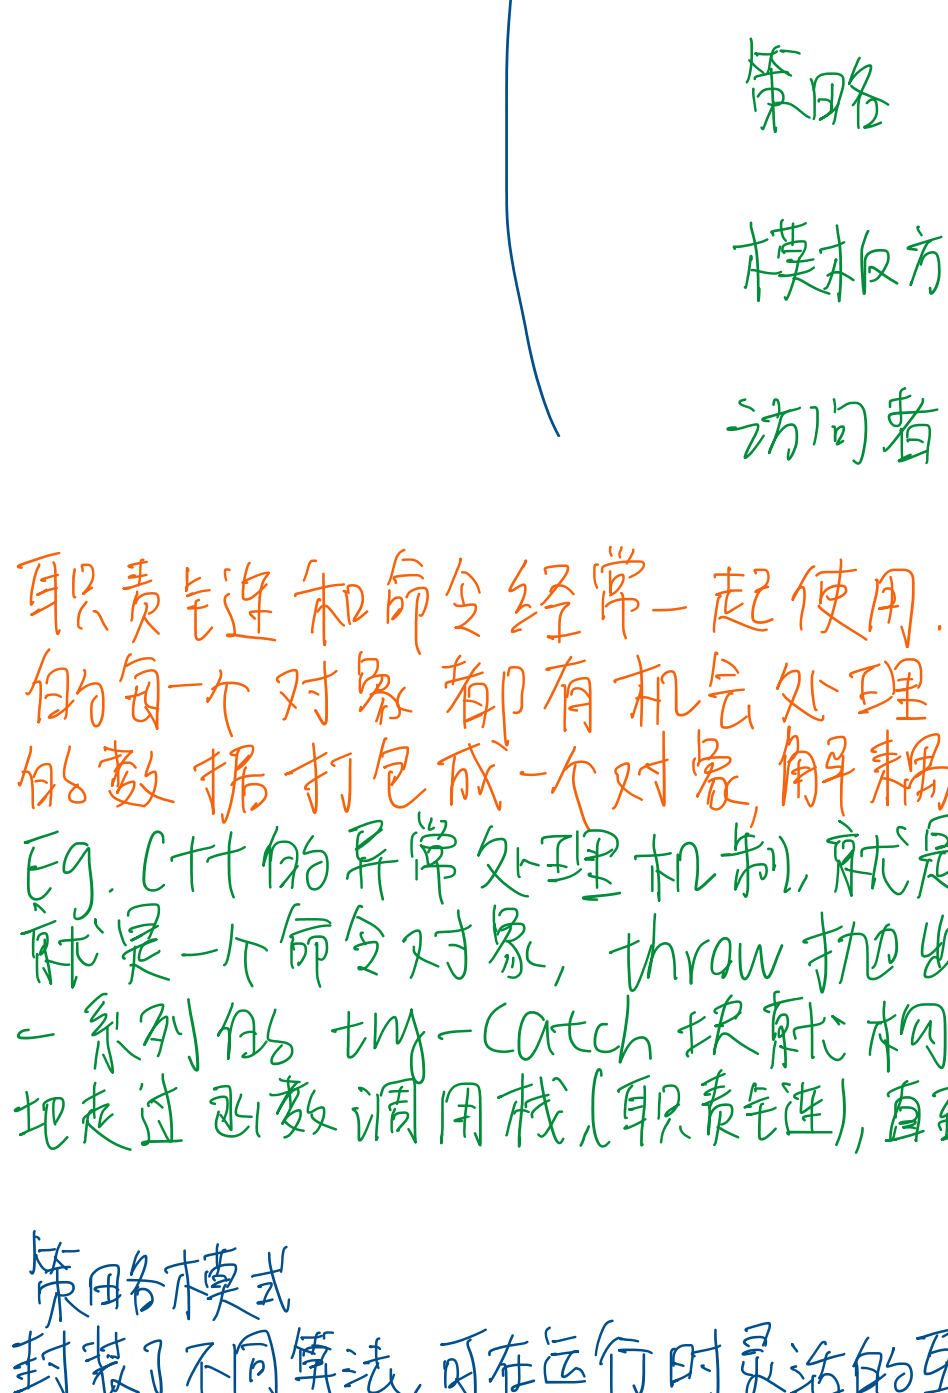 策略
模板方
访问者
职责链和命令经常一起使用.
的每一个对象都有机会处理
的数据打包成一个对象,解耦
Eg. C++的异常处理机制,就是
就是一个命令对象, throw 抛出
一系列的 try-catch 块就构
地走过函数调用栈,(职责链),直到
策略模式
封装了不同算法,可在运行时灵活的互